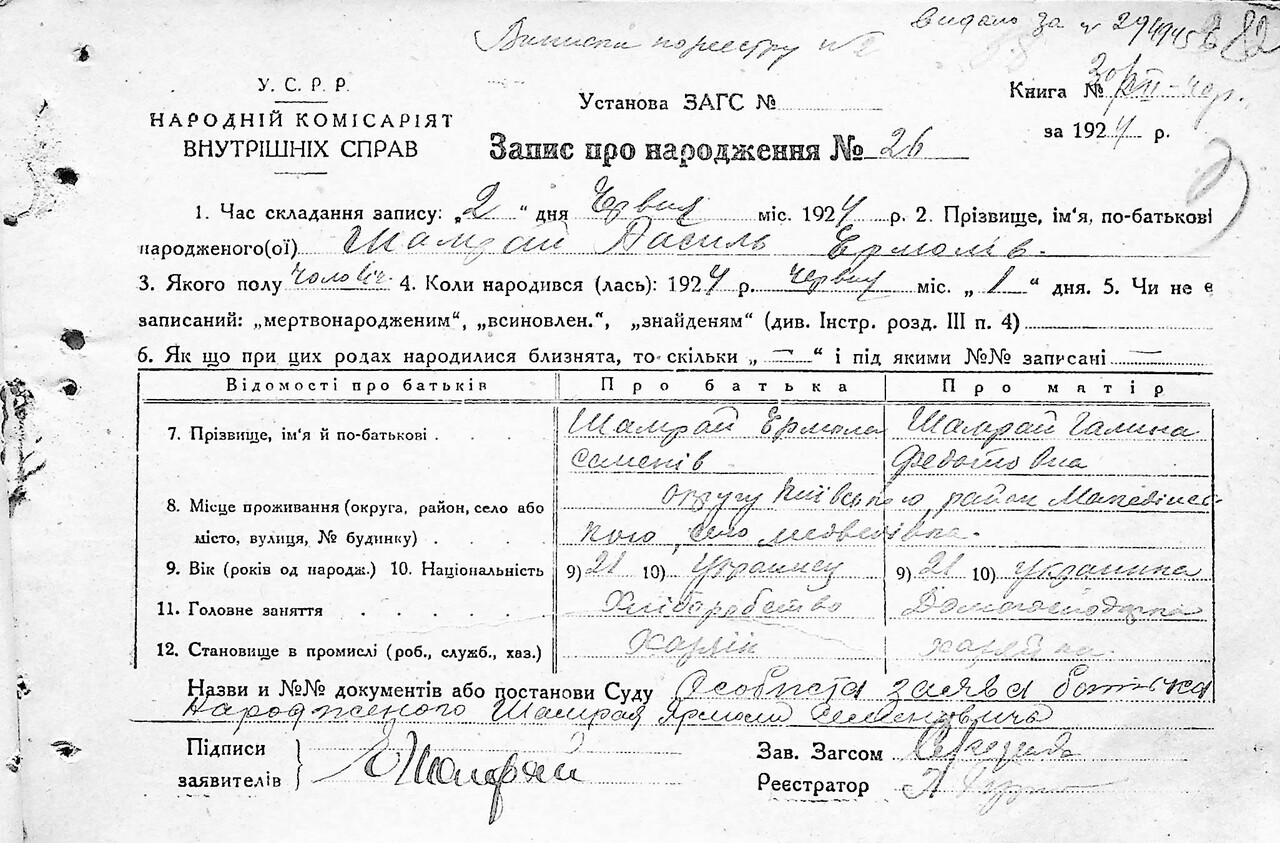 видано за № 29/IV 45
Виписки по реестру № 2
82
У. С. Р. Р.
НАРОДНІЙ КОМІСАРІЯТ
ВНУТРІШНІХ СПРАВ
Установа ЗАГС №
Запис про народження № 26
Книга №
за 1924 р.
1. Час складання запису: „2“ дня Червня міс. 1924 р. 2. Прізвище, ім'я, по-батькові
народженого(ої) Шамрай Василь Ермолів.
3. Якого полу чоловіч. 4. Коли народився (лась): 1924 р. червня міс. „1“ дня. 5. Чи не є
записаний: „мертвонародженим“, „всиновлен.“, „знайденям“ (див. Інстр. розд. III п. 4)
6. Як що при цих родах народилися близнята, то скільки „—“ і під якими №№ записані —
Відомості про батьків Про батька Про матір
7. Прізвище, ім'я й по-батькові Шамрай Ермола Шамрай Галина
Семенів Федотовна
8. Місце проживання (округа, район, село або округу Київського район
місто, вулиця, № будинку) кого, село медведівка.
9. Вік (років од народж.) 10. Національність 9) 21 10) Українец 9) 21 10) украинка
11. Головне заняття Хліборобство Домогосподарка
12. Становище в промислі (роб., служб., хаз.) хазяін хазяйка
Назви и №№ документів або постанови Суду Особиста заява батька
народженого Шамрая Ярмоли Семеновича
Підписи
заявителів Е Шамрай
Зав. Загсом
Реєстратор